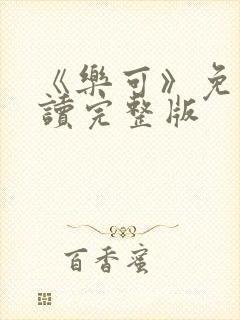 《樂可》免
讀完整版
百香蜜